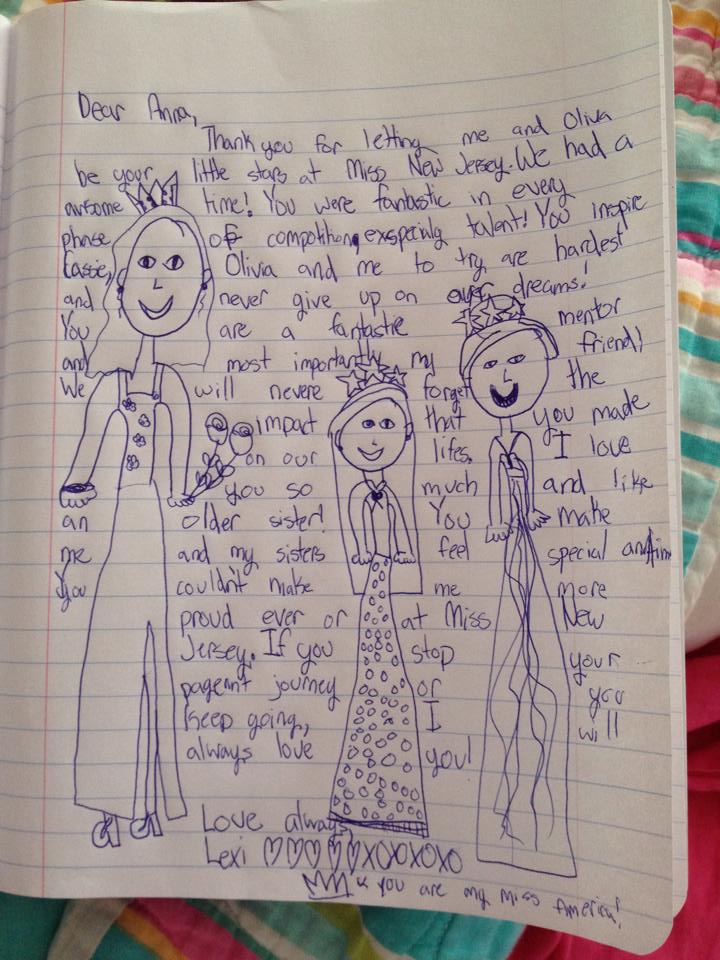 Dear Anna,
Thank you for letting me and Oliva
be your little stars at Miss New Jersey. We had a
awsome time! You were fantastic in every
phase of compotition, exspecialy talent! You inspire
Casse, Olivia and me to try are hardest
and never give up on over dreams!
You are a fantastic mentor
and most importantly my friend!
We will nevere forget the
impact that you made
on our lifes. I love
you so much and like
an older sister! You make
me and my sisters feel special anytime
You couldn't make me more
proud ever or at Miss New
Jersey. If you stop your
pagent journey or you
keep going, I will
always love you!
Love always
Lexi ♡♡♡♡♡XOXOXOXO
you are my Miss America!